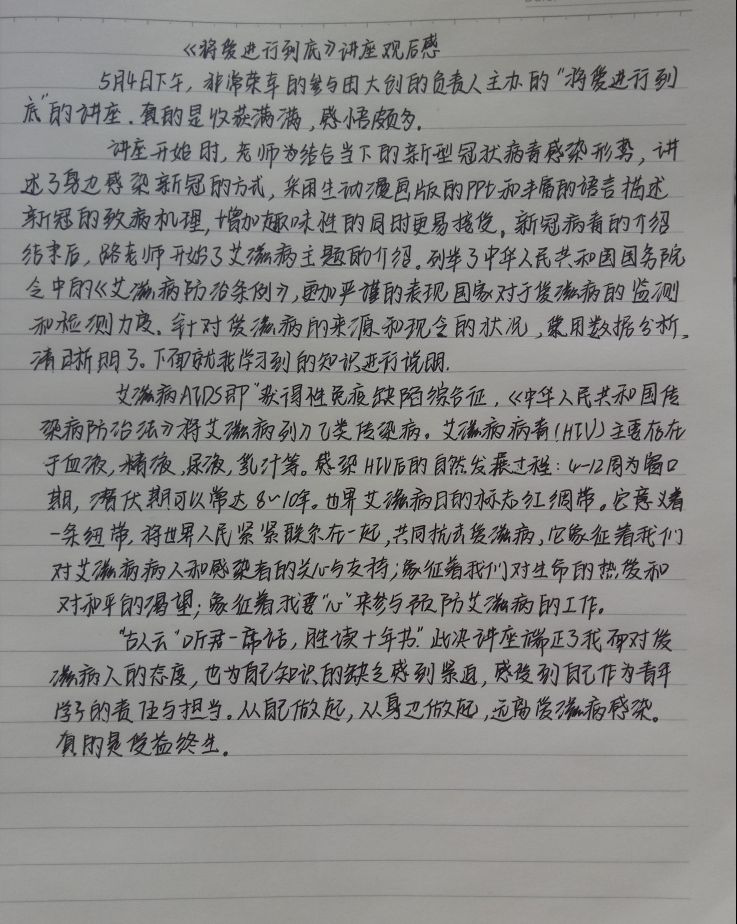 《将爱进行到底》讲座观后感
5月4日下午，非常荣幸的参与由大创的负责人主办的“将爱进行到
底”的讲座．真的是收获满满，感悟颇多．
讲座开始时，老师为结合当下的新型冠状病毒感染形势，讲
述了身边感染新冠的方式，采用生动漫画版的PPt和丰富的语言描述
新冠的致病机理，增加趣味性的同时更易接受。新冠病毒的介绍
结束后，路老师开始了艾滋病主题的介绍。列举了中华人民共和国国务院
令中的《艾滋病防治条例》，更加严谨的表现国家对于爱滋病的监测
和检测力度。针对爱滋病的来源和现今的状况，采用数据分析，
清晰明了。下面就我学习到的知识进行说明.
艾滋病AIDS即“获得性免疫缺陷综合征，《中华人民共和国传
染病防治法》将艾滋病列为乙类传染病。艾滋病病毒(HIV)主要存在
于血液，精液，尿液，乳汁等。感染HIV后的自然发展过程：4-12周为窗口
期，潜伏期可以常达8~10年。世界艾滋病日的标志红绸带。它意义着
一条纽带，将世界人民紧紧联系在一起，共同抗击爱滋病，它象征着我们
对艾滋病病人和感染者的关心与支持；象征着我们对生命的热爱和
对和平的渴望；象征着我要“心”来参与预防艾滋病的工作。
“古人云“听君一席话，胜读十年书”.此次讲座端正了我面对爱
滋病人的态度，也为自己知识的缺乏感到紧迫，感受到自己作为青年
学子的责任与担当。从自己做起，从身边做起，远离爱滋病感染。
真的是受益终生。